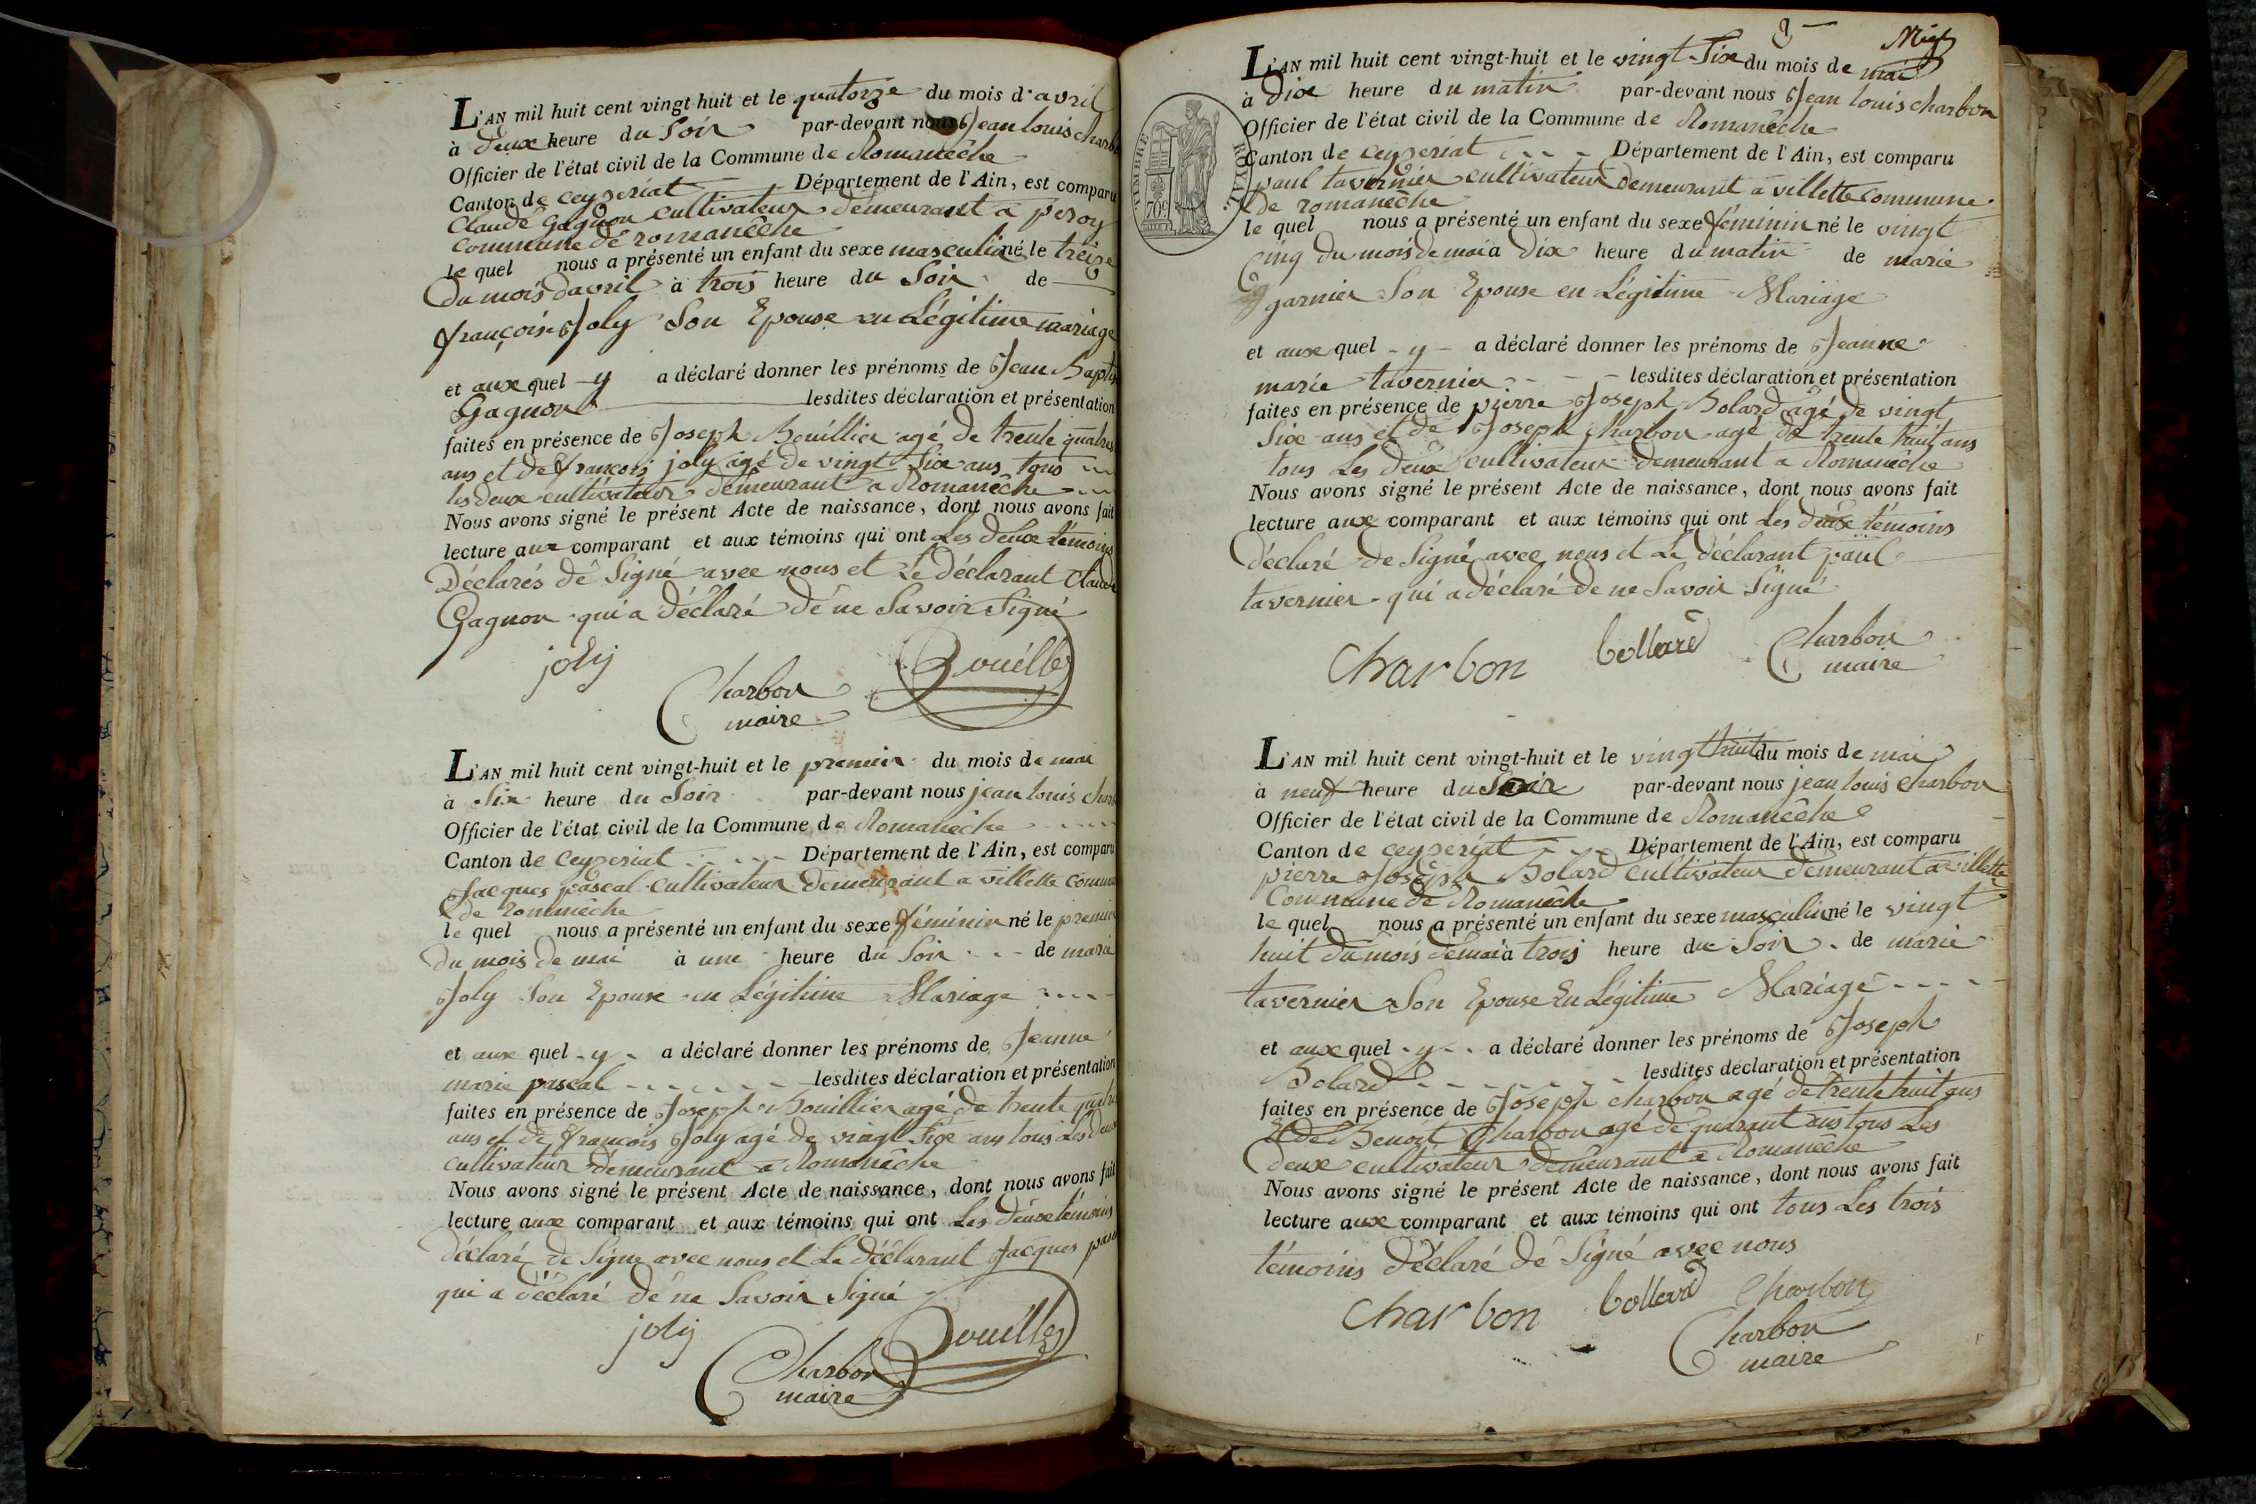 L'AN mil huit cent vingt-huit et le quatorze du mois d'avril
à deux heure du Soir par-devant nous Jean louis charbon
Officier de l'état civil de la Commune de Romanêche
Canton de ceyzeriat Département de l'Ain, est comparu
Claude Gagnon cultivateur demeurant a peroy
commune de romanêche
le quel nous a présenté un enfant du sexe masculin né le treize
du mois d'avril à trois heure du Soir de
françoise Joly Son Epouse en Légitime mariage
et aux quel y a déclaré donner les prénoms de Jean Baptis
Gagnon lesdites déclaration et présentation
faites en présence de Joseph Bouillier agé de trente quatres
ans et de françois joly agé de vingt Six ans tous
les deux cultivateur demeurant a Romanêche
Nous avons signé le présent Acte de naissance, dont nous avons fait
lecture aux comparant et aux témoins qui ont Les deux témoins
Déclarés de Signé avec nous et Le déclarant Claude
Gagnon qui a déclaré de ne Savoir Signé
joly
Charbon
maire
Bouillier
L'AN mil huit cent vingt-huit et le premier du mois de mai
à Six heure du Soir par-devant nous jean louis charb
Officier de l'état civil de la Commune de Romanêche
Canton de ceyzeriat Département de l'Ain, est comparu
Jacques pascal cultivateur demeurant a villette commune
de romanêche
le quel nous a présenté un enfant du sexe féminin né le premier
du mois de mai à une heure du Soir de marie
Joly Son Epouse en Légitime Mariage
et aux quel y a déclaré donner les prénoms de Jeanne
marie pascal lesdites déclaration et présentation
faites en présence de Joseph Bouillier agé de trente quatre
ans et de françois Joly agé de vingt Six ans tous Les deux
cultivateur demeurant a Romanêche
Nous avons signé le présent Acte de naissance, dont nous avons fait
lecture aux comparant et aux témoins qui ont Les deux témoins
déclaré de Signé avec nous et Le déclarant Jacques pascal
qui a déclaré de ne Savoir Signé
joly
Bouillier
Charbon
maire
L'AN mil huit cent vingt-huit et le vingt-Six du mois de mai
à Dix heure du matin par-devant nous Jean louis charbon
TIMBRE ROYAL
70c
Officier de l'état civil de la Commune de Romanêche
Canton de ceyzeriat Département de l'Ain, est comparu
paul tavernier cultivateur demeurant a villette commune
De romanêche
le quel nous a présenté un enfant du sexe féminin né le vingt
Cinq du mois de mai à Dix heure du matin de marie
garnier Son Epouse en Légitime Mariage
et aux quel y a déclaré donner les prénoms de Jeanne
marie tavernier lesdites déclaration et présentation
faites en présence de pierre Joseph Bolard agé de vingt
Six ans et de Joseph charbon agé de trente huit ans
tous Les deux cultivateur demeurant a Romanêche
Nous avons signé le présent Acte de naissance, dont nous avons fait
lecture aux comparant et aux témoins qui ont Les deux témoins
déclaré de Signé avec nous et Le déclarant paul
tavernier qui a déclaré de ne Savoir Signé
Charbon
bollard
Charbon
maire
L'AN mil huit cent vingt-huit et le vingt huit du mois de mai
à neuf heure du Soir par-devant nous jean louis charbon
Officier de l'état civil de la Commune de Romanêche
Canton de ceyzeriat Département de l'Ain, est comparu
pierre Joseph Bolard cultivateur demeurant a villette
Commune de Romanêche
le quel nous a présenté un enfant du sexe masculin né le vingt
huit du mois de mai à trois heure du Soir de marie
tavernier Son Epouse En Légitime Mariage
et aux quel y a déclaré donner les prénoms de Joseph
Bolard lesdites déclaration et présentation
faites en présence de Joseph charbon agé de trente huit ans
Et de Benoit Charbon agé de quarant ans tous Les
deux cultivateur demeurant a Romanêche
Nous avons signé le présent Acte de naissance, dont nous avons fait
lecture aux comparant et aux témoins qui ont tous Les trois
témoins déclaré de Signé avec nous
Charbon
bollard
Charbon
Charbon
maire